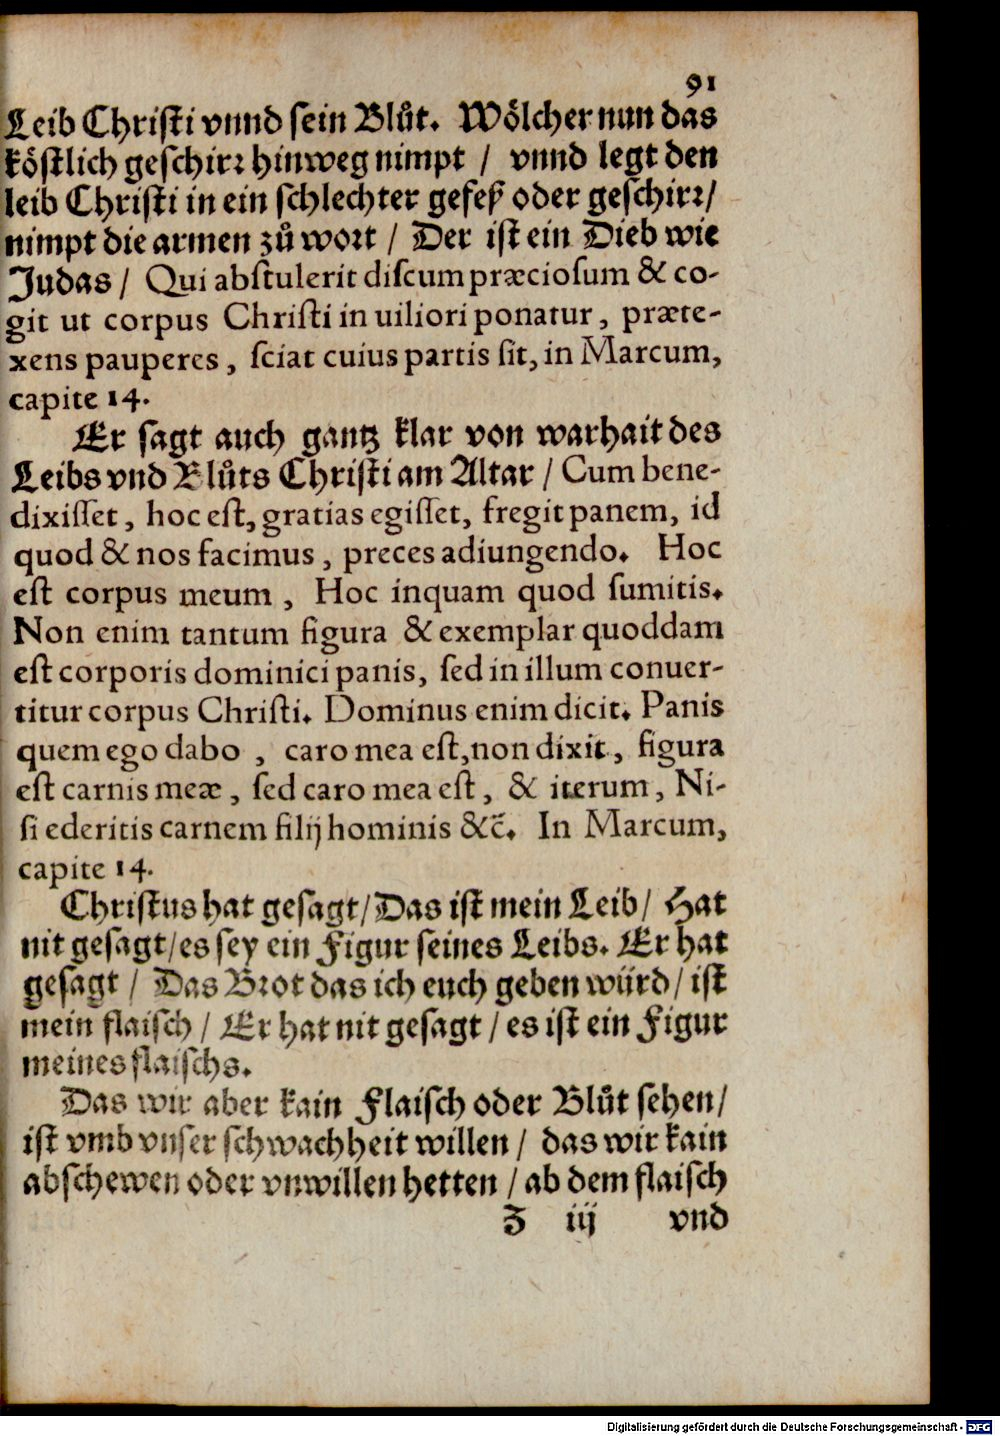 91
Leib Christi vnnd sein Blůt. Wölcher nun das
köstlich geschirr hinweg nimpt / vnnd legt den
leib Christi in ein schlechter gefeß oder geschirr/
nimpt die armen zů wort / Der ist ein Dieb wie
Judas / Qui abstulerit discum præciosum & co-
git ut corpus Christi in uiliori ponatur, præte-
xens pauperes, sciat cuius partis sit, in Marcum,
capite 14.
Er sagt auch gantz klar von warhait des
Leibs vnd Blůts Christi am Altar / Cum bene-
dixisset, hoc est, gratias egisset, fregit panem, id
quod & nos facimus, preces adiungendo. Hoc
est corpus meum, Hoc inquam quod sumitis.
Non enim tantum figura & exemplar quoddam
est corporis dominici panis, sed in illum conuer-
titur corpus Christi. Dominus enim dicit. Panis
quem ego dabo, caro mea est, non dixit, figura
est carnis meæ, sed caro mea est, & iterum, Ni-
si ederitis carnem filij hominis &c̃. In Marcum,
capite 14.
Christus hat gesagt/Das ist mein Leib/ Hat
nit gesagt/es sey ein Figur seines Leibs. Er hat
gesagt / Das Brot das ich euch geben würd/ ist
mein flaisch / Er hat nit gesagt / es ist ein Figur
meines flaischs.
Das wir aber kain Flaisch oder Blůt sehen/
ist vmb vnser schwachheit willen / das wir kain
abschewen oder vnwillen hetten / ab dem flaisch
Z iij vnd
Digitalisierung gefördert durch die Deutsche Forschungsgemeinschaft - DFG